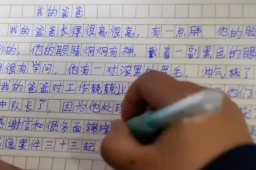 我的爸爸
我的爸爸长得很高很高，有一点胖，他的脸
的，他的眼睛炯炯有神，戴着一副黑色的眼
很有学问，他有一对深黑的眉毛，帅气极了
我的爸爸对工作兢兢业业
中队长了，因为他处理
感谢信和很多面锦旗
三十三起